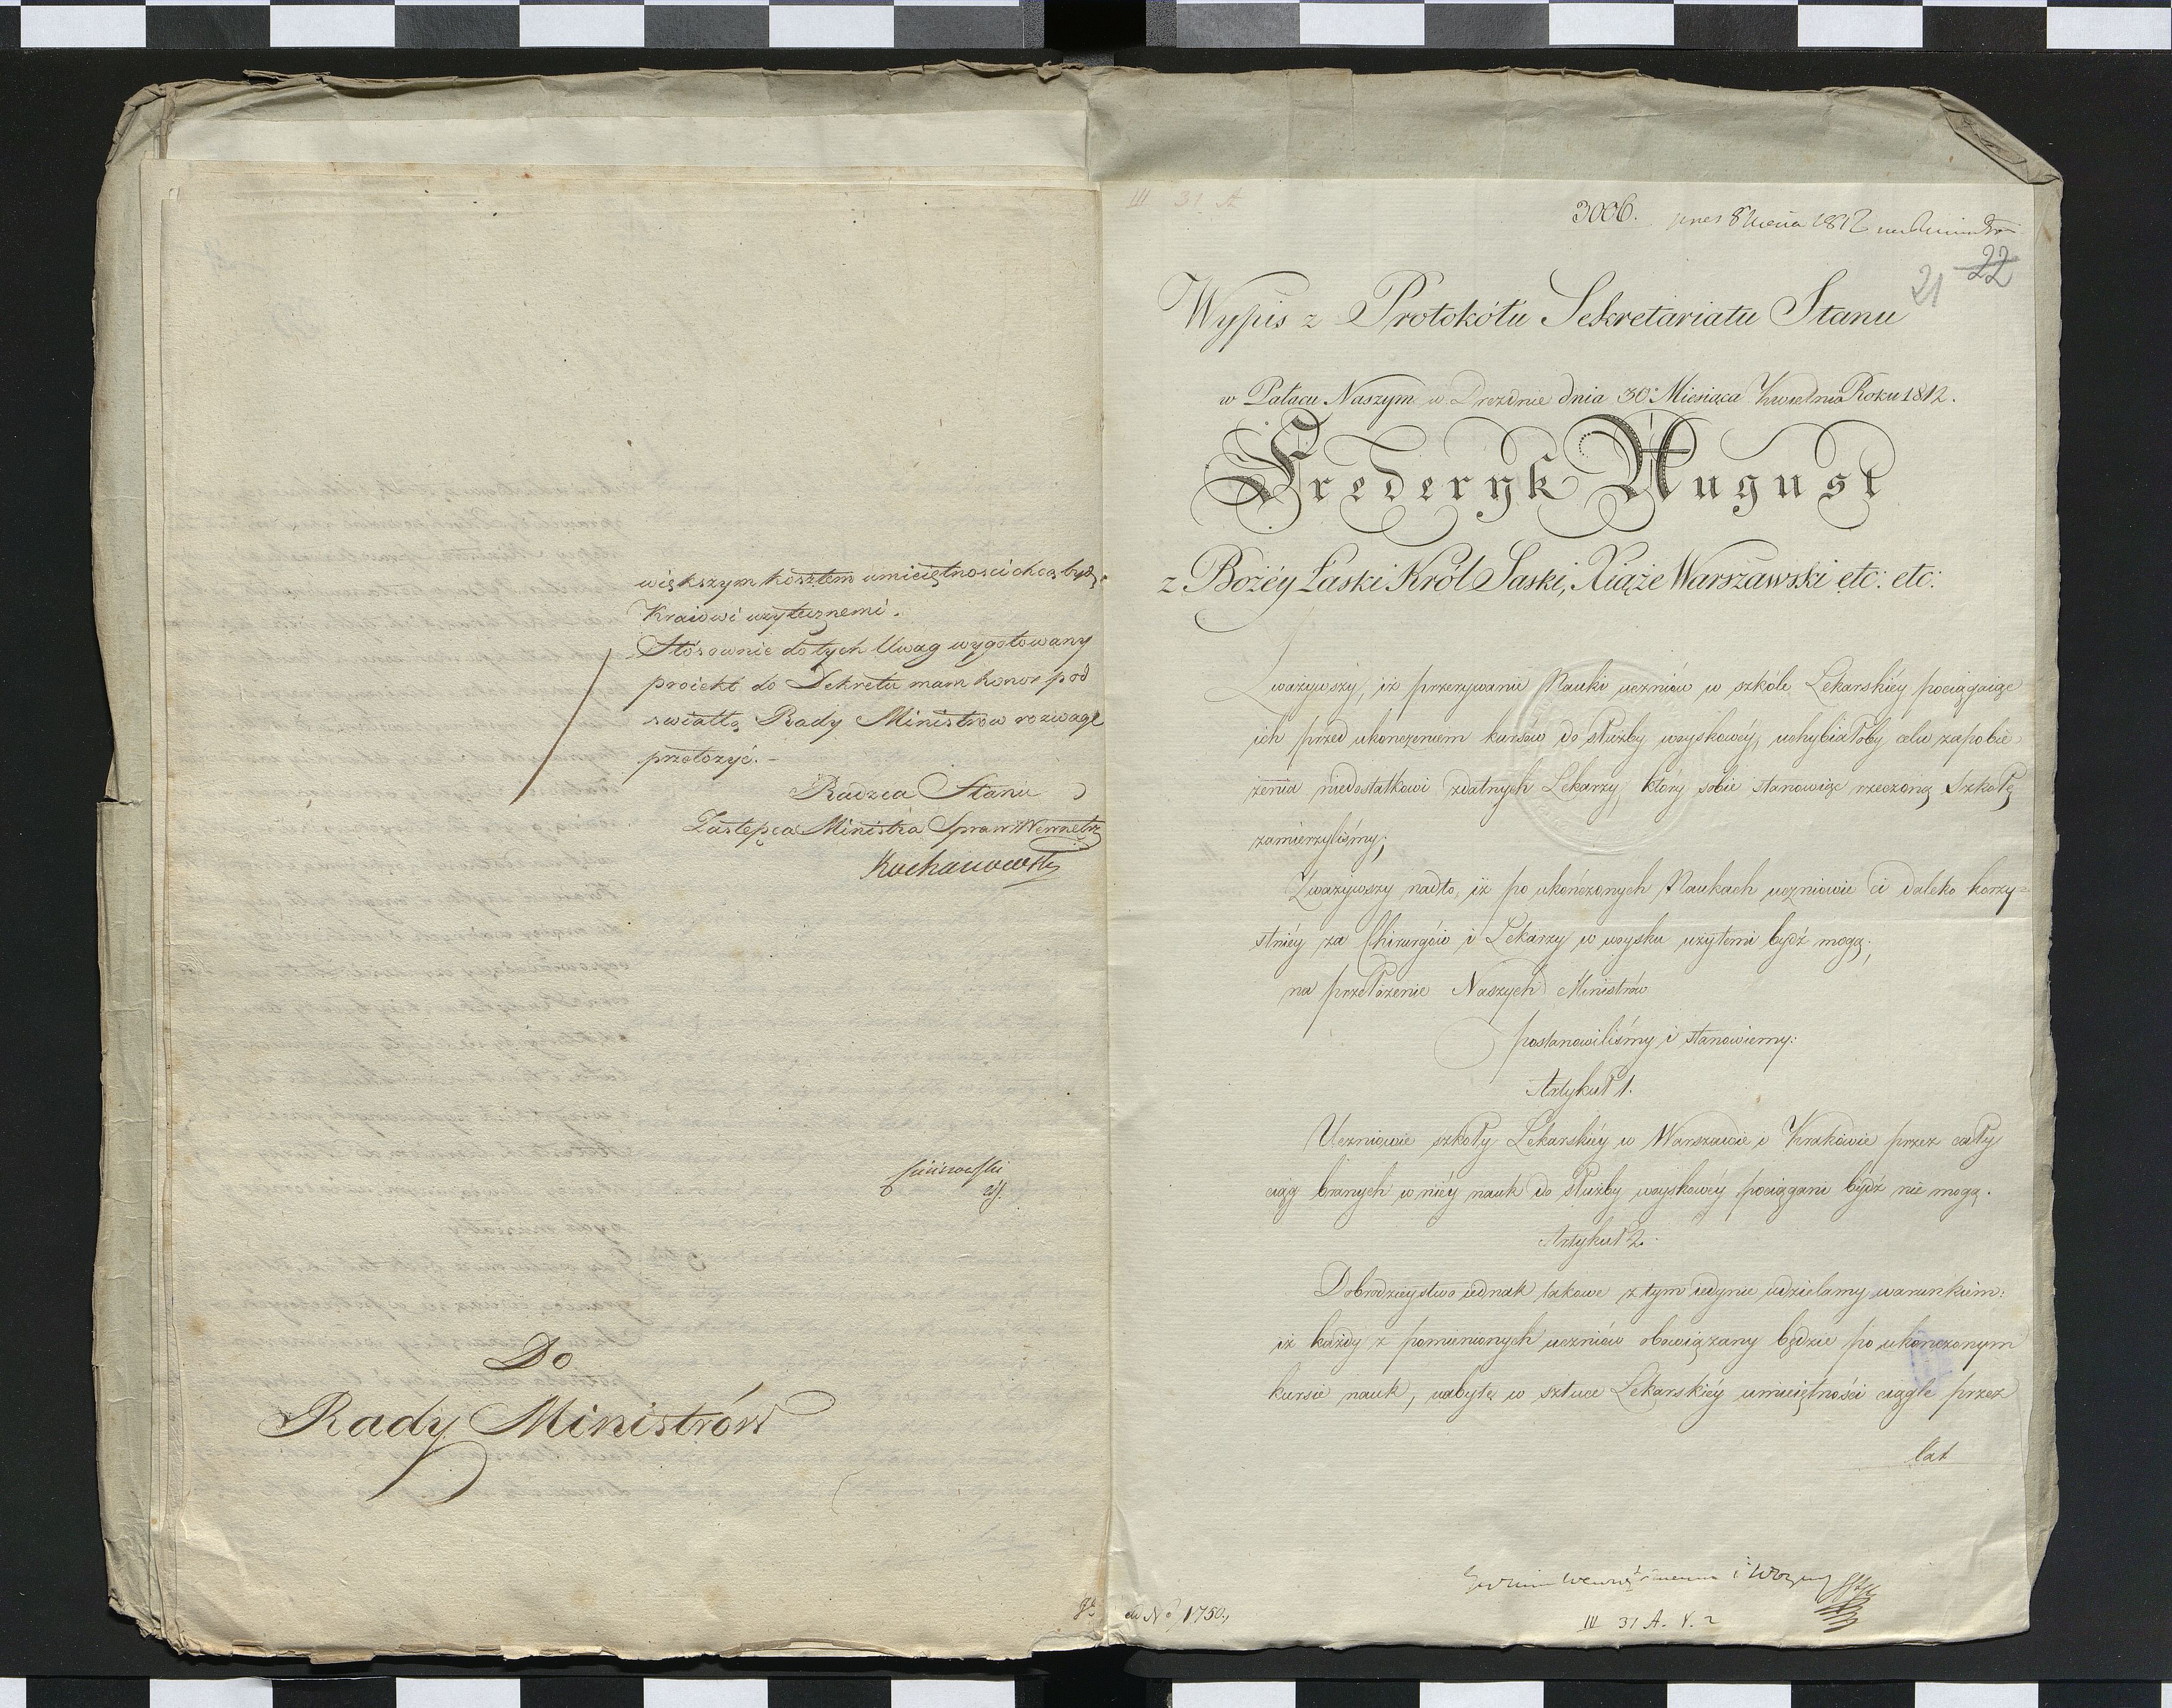 większym kosztem umieiętnosci chcą bydź
Kraiowi użytecznemi.
Stósownie do tych Uwag wygotowany
proiekt do Dekretu mam honor pod
swiatłą Rady Ministrow rozwagę
przełożyć.-
Radzca Stanu
Zastępca Ministra Spraw Wewnętrz
Kochanowski
Do
Rady Ministrów
III 31 A
3006. 1812
21 22
Wypis z Protokółu Sekretariatu Stanu
w Pałacu Naszym w Dreźdnie dnia 30 Miesiąca Kwietnia Roku 1812.
Frederyk August
z Bożéy Łaski Król Saski, Xiąże Warszawski etc: etc:
Zważywszy, iż przerywanie Nauki uczniów w szkóle Lekarskiéy pociągaiąc
ich przed ukończeniem kursów do służby woyskowéy, uchybiałoby celu zapobie
żenia niedostatkowi zdatnych Lekarzy, który sobie stanowiąc rzeczoną Szkołę
zamierzyliśmy;
Zważywszy nadto, iż po ukończonych Naukach uczniowie ci daleko korzy=
stniéy za Chirurgów i Lekarzy w woysku użytemi bydź mogą;
na przełożenie Naszych Ministrów
postanowiliśmy i stanowiemy:
Artykuł 1.
Uczniowie szkoły Lekarskiéy w Warszawie i Krakowie przez cały
ciąg branych w niéy nauk do służby woyskowéy pociągani bydź nie mogą.
Artykuł 2.
Dobrodzieystwo iednak takowe z tym iedynie udzielamy warunkiem:
iż każdy z pomienionych uczniów obowiązany będzie po ukończonym
kursie nauk, nabytę w sztuce Lekarskiéy umieiętności ciągle przez
lat
ad No 1750.
III 31 A. V. 2